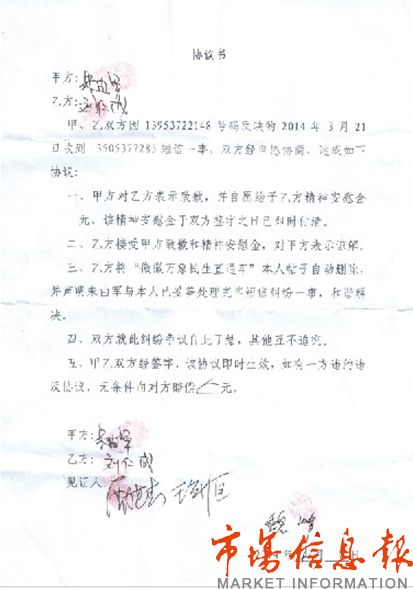 协议书
甲方:
乙方:刘仁成
甲、乙双方因 13953722148 号码反映的 2014 年 3 月 21
日收到 13505377285 短信一事,双方经自愿协商,达成如下
协议:
一、甲方对乙方表示致歉,并自愿给于乙方精神安慰金
元,该精神安慰金于双方签字之日已即时付清。
二、乙方接受甲方致歉和精神安慰金,对甲方表示谅解。
三、乙方将“微微万象民生直通车”本人帖子自动删除,
并声明朱由军与本人已妥善处理完当短信纠纷一事,和谐解
决。
四、双方就此纠纷争议自此了结,其他互不追究。
五、甲乙双方经签字,该协议即时生效,如有一方违约违
反协议,无条件向对方赔偿 元。
甲方:
乙方:刘仁成
见证人:
年 月 日
市场信息報
MARKET INFORMATION